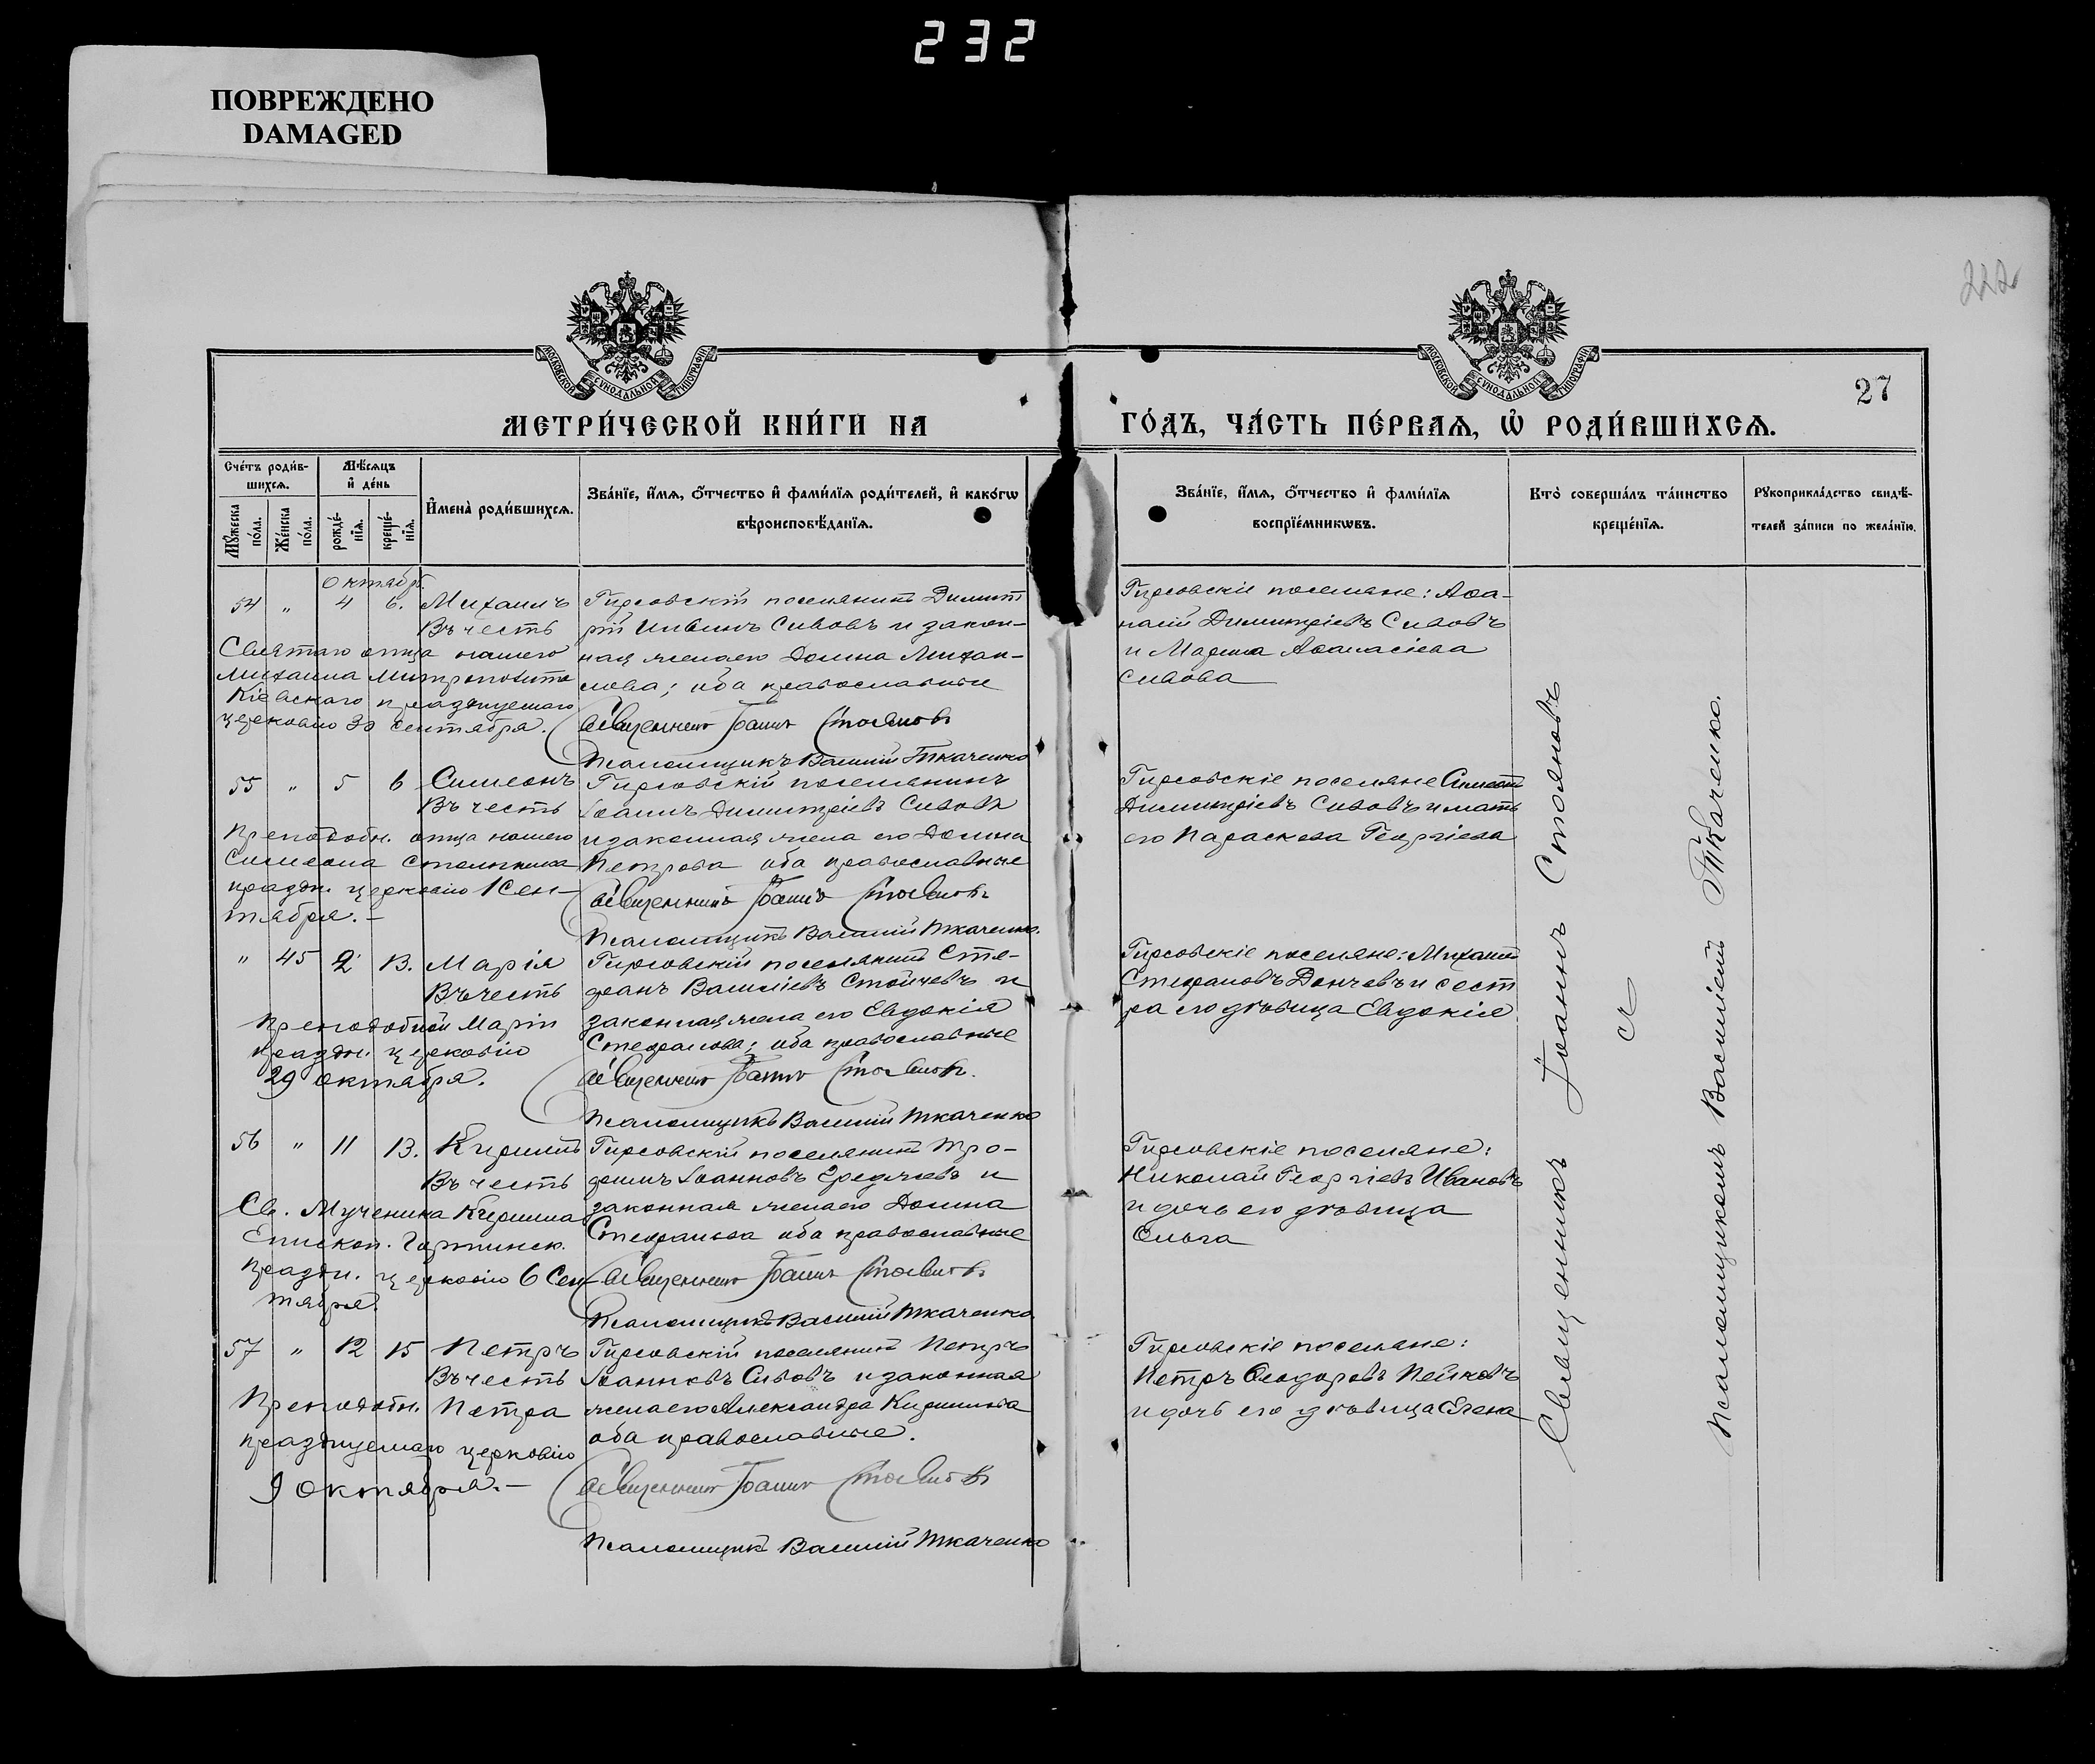 232
ПОВРЕЖДЕНО
DAMAGED
222
27
МОСКОВСКОЙ СѴНОДАЛЬНОЙ ТИПОГРАФІИ
МОСКОВСКОЙ СѴНОДАЛЬНОЙ ТИПОГРАФІИ
МЕТРИ́ЧЕСКОЙ КНИ́ГИ НА
ГО́ДЪ, ЧА́СТЬ ПЕ́РВАѦ, Ѽ РОДИ́ВШИХСѦ.
Сче́тъ роди́в-
шихсѧ.
Мꙋ́жеска по́ла.
Же́нска по́ла.
Мѣ́сѧцъ
и҆ де́нь
рожде́-
нїѧ.
креще́-
нїѧ.
И҆мена̀ роди́вшихсѧ.
Зва́нїе, и҆́мѧ, ѻ҆́тчество и҆ фами́лїѧ роди́телей, и҆ како́гѡ
вѣроисповѣ́данїѧ.
Зва́нїе, и҆́мѧ, ѻ҆́тчество и҆ фами́лїѧ
воспрїе́мникѡвъ.
Кто̀ соверша́лъ та́инство
креще́нїѧ.
Рꙋкоприкла́дство свидѣ́-
телей за́писи по жела́нїю.
Октябр.
54 " 4 6. Михаилъ
Въ честь
Святаго отца нашего
Михаила Митрополита
Кіевскаго празднуемаго
церковію 30 сентября.
Гирсовскій поселянинъ Димит
рій Ивинъ Сивовъ и закон-
ная жена его Домна Михаи-
лова; оба православные
Священникъ Іоаннъ Стояновъ
Псаломщикъ Василій Ткаченко
Гирсовскіе поселяне: Афа-
насій Димитріевъ Сивовъ
и Марина Афанасіева
Сивова
55 " 5 6 Симеонъ
Въ честь
Преподобн. отца нашего
Симеона столпника
праздн. церковію 1 Сен-
тября.-
Гирсовскій поселянинъ
Іоаннъ Димитріевъ Сивовъ
и законная жена его Домна
Петрова оба православные
Священникъ Іоаннъ Стояновъ
Псаломщикъ Василій Ткаченко.
Гирсовскіе поселяне Симеонъ
Димитріевъ Сивовъ и мать
его Параскева Георгіева
" 45 2 13. Марія
Въ честь
Преподобной Маріи
праздн. церковію
29 октября.
Гирсовскій поселянинъ Сте-
фанъ Василіевъ Стойчевъ и
законная жена его Евдокія
Стефанова; оба православные
Священникъ Іоаннъ Стояновъ.
Псаломщикъ Василій Ткаченко
Гирсовскіе поселяне: Михаилъ
Стефановъ Дончевъ и сест
ра его дѣвица Евдокія
56 " 11 13. Кириллъ
Въ честь
Св. Мученика Кирилла
Епископ. Гортинск.
праздн. церковію 6 Сен-
тября.
Гирсовскій поселянинъ Тро-
фимъ Іоанновъ Средневъ и
законная жена его Домна
Стефанова оба православные
Священникъ Іоаннъ Стояновъ
Псаломщикъ Василій Ткаченко
Гирсовскіе поселяне:
Николай Георгіевъ Ивановъ
и дочь его дѣвица
Ольга
57 " 12 15 Петръ
Въ честь
Преподобн. Петра
празднуемаго церковію
9 Октября.-
Гирсовскій поселянинъ Петръ
Іоанновъ Сивовъ и законная
жена его Александра Кириллова
оба православные.
Священникъ Іоаннъ Стояновъ
Псаломщикъ Василій Ткаченко
Гирсовскіе поселяне:
Петръ Феодоровъ Пейковъ
и дочь его дѣвица Елена
Священникъ Іоаннъ Стояновъ
съ
Псаломщикомъ Василіемъ Ткаченко.